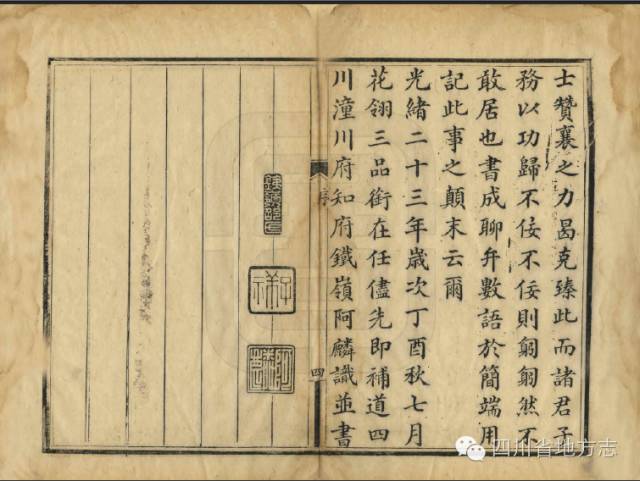 士贊襄之力曷克臻此而諸君子
務以功歸不佞不佞則匑匑然不
敢居也書成聊弁數語於簡端用
記此事之顛末云爾
光緒二十三年歲次丁酉秋七月
花翎三品銜在任儘先即補道四
川潼川府知府鐵嶺阿麟識並書
序
四
四川省地方志